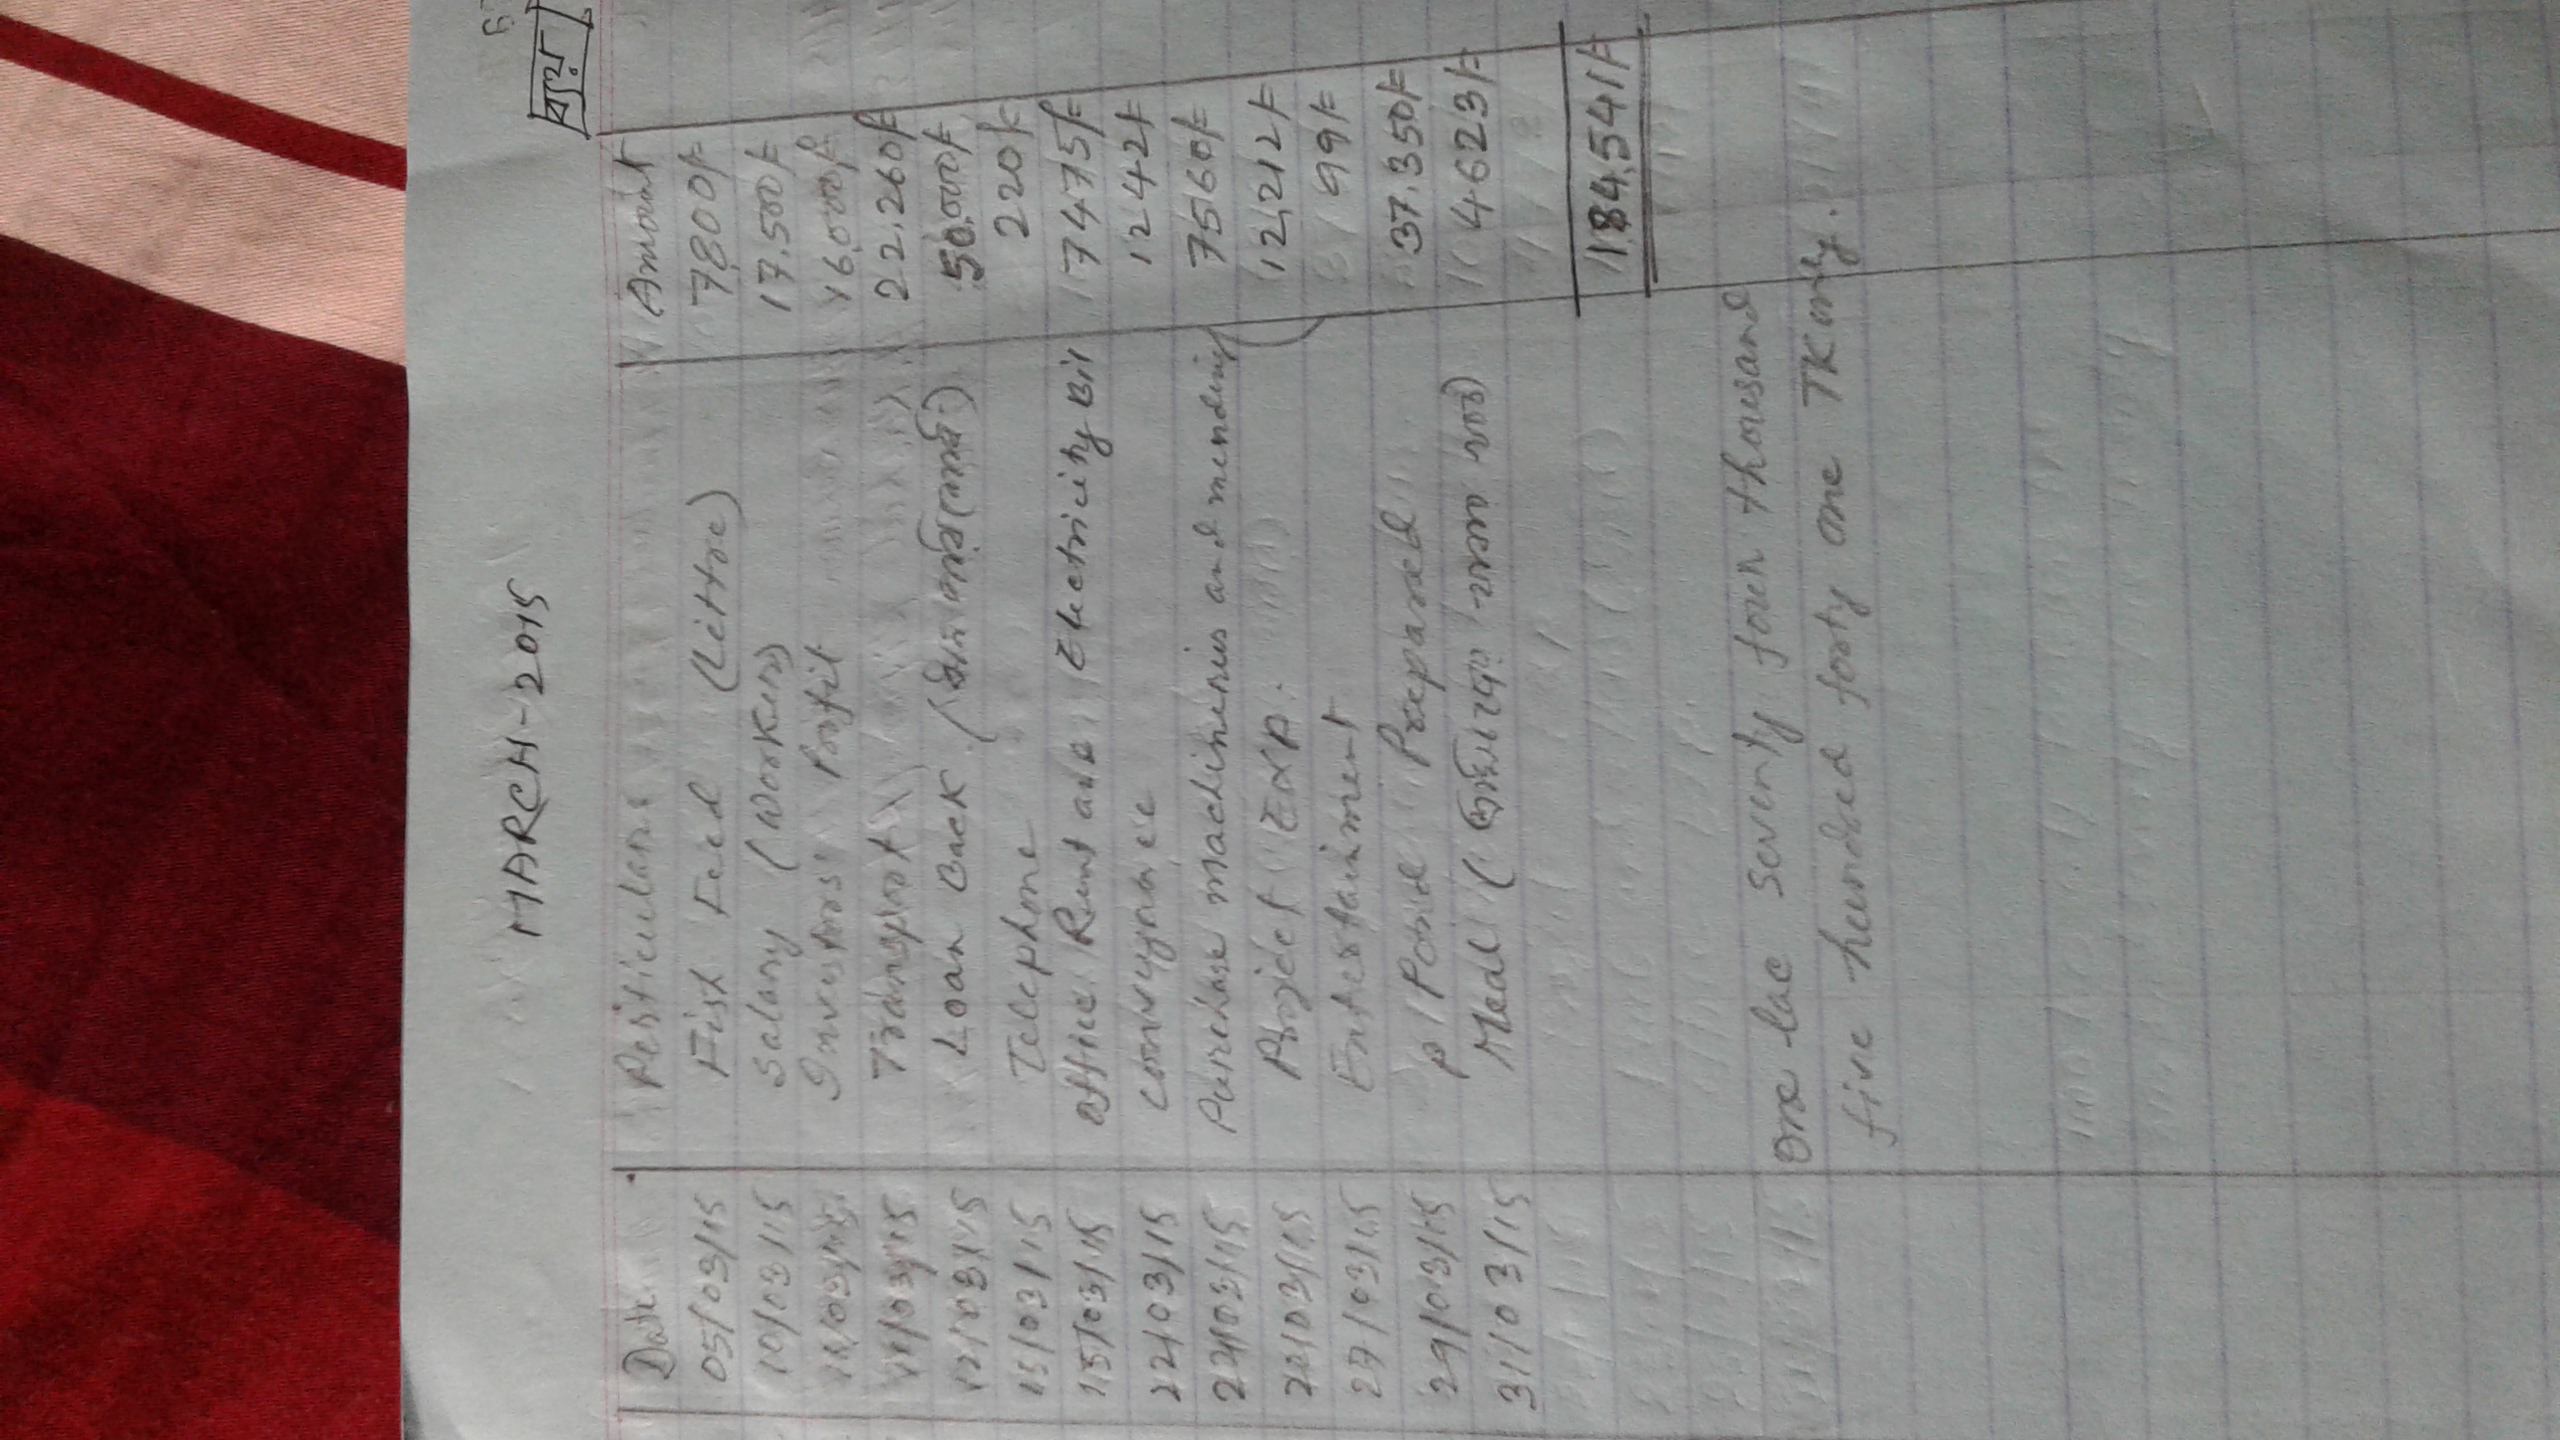 MARCH-2015
ব্যয়
Date Perticulars Amount
05/03/15 Fish Feed (Littre) 7,800/=
10/03/15 Salary (Workers) 17,500/=
/03/15 Investors' Profit 16,000/=
/03/15 Transport 22,260/=
12/03/15 Loan Back 50,000/=
15/03/15 Telephone 220/=
15/03/15 Office Rent and Electricity Bil 7475/=
22/03/15 Conveynance 1242/=
22/03/15 Purchase machineries and mending 7560/=
/03/15 Project EXP. 12,212/=
27/03/15 Entertainment 99/=
29/03/15 P Pond Prepared 37,350/=
31/03/15 Meal ( 4623/=
184,541/=
One lac Seventy four thousand
five hundred forty one TK only.